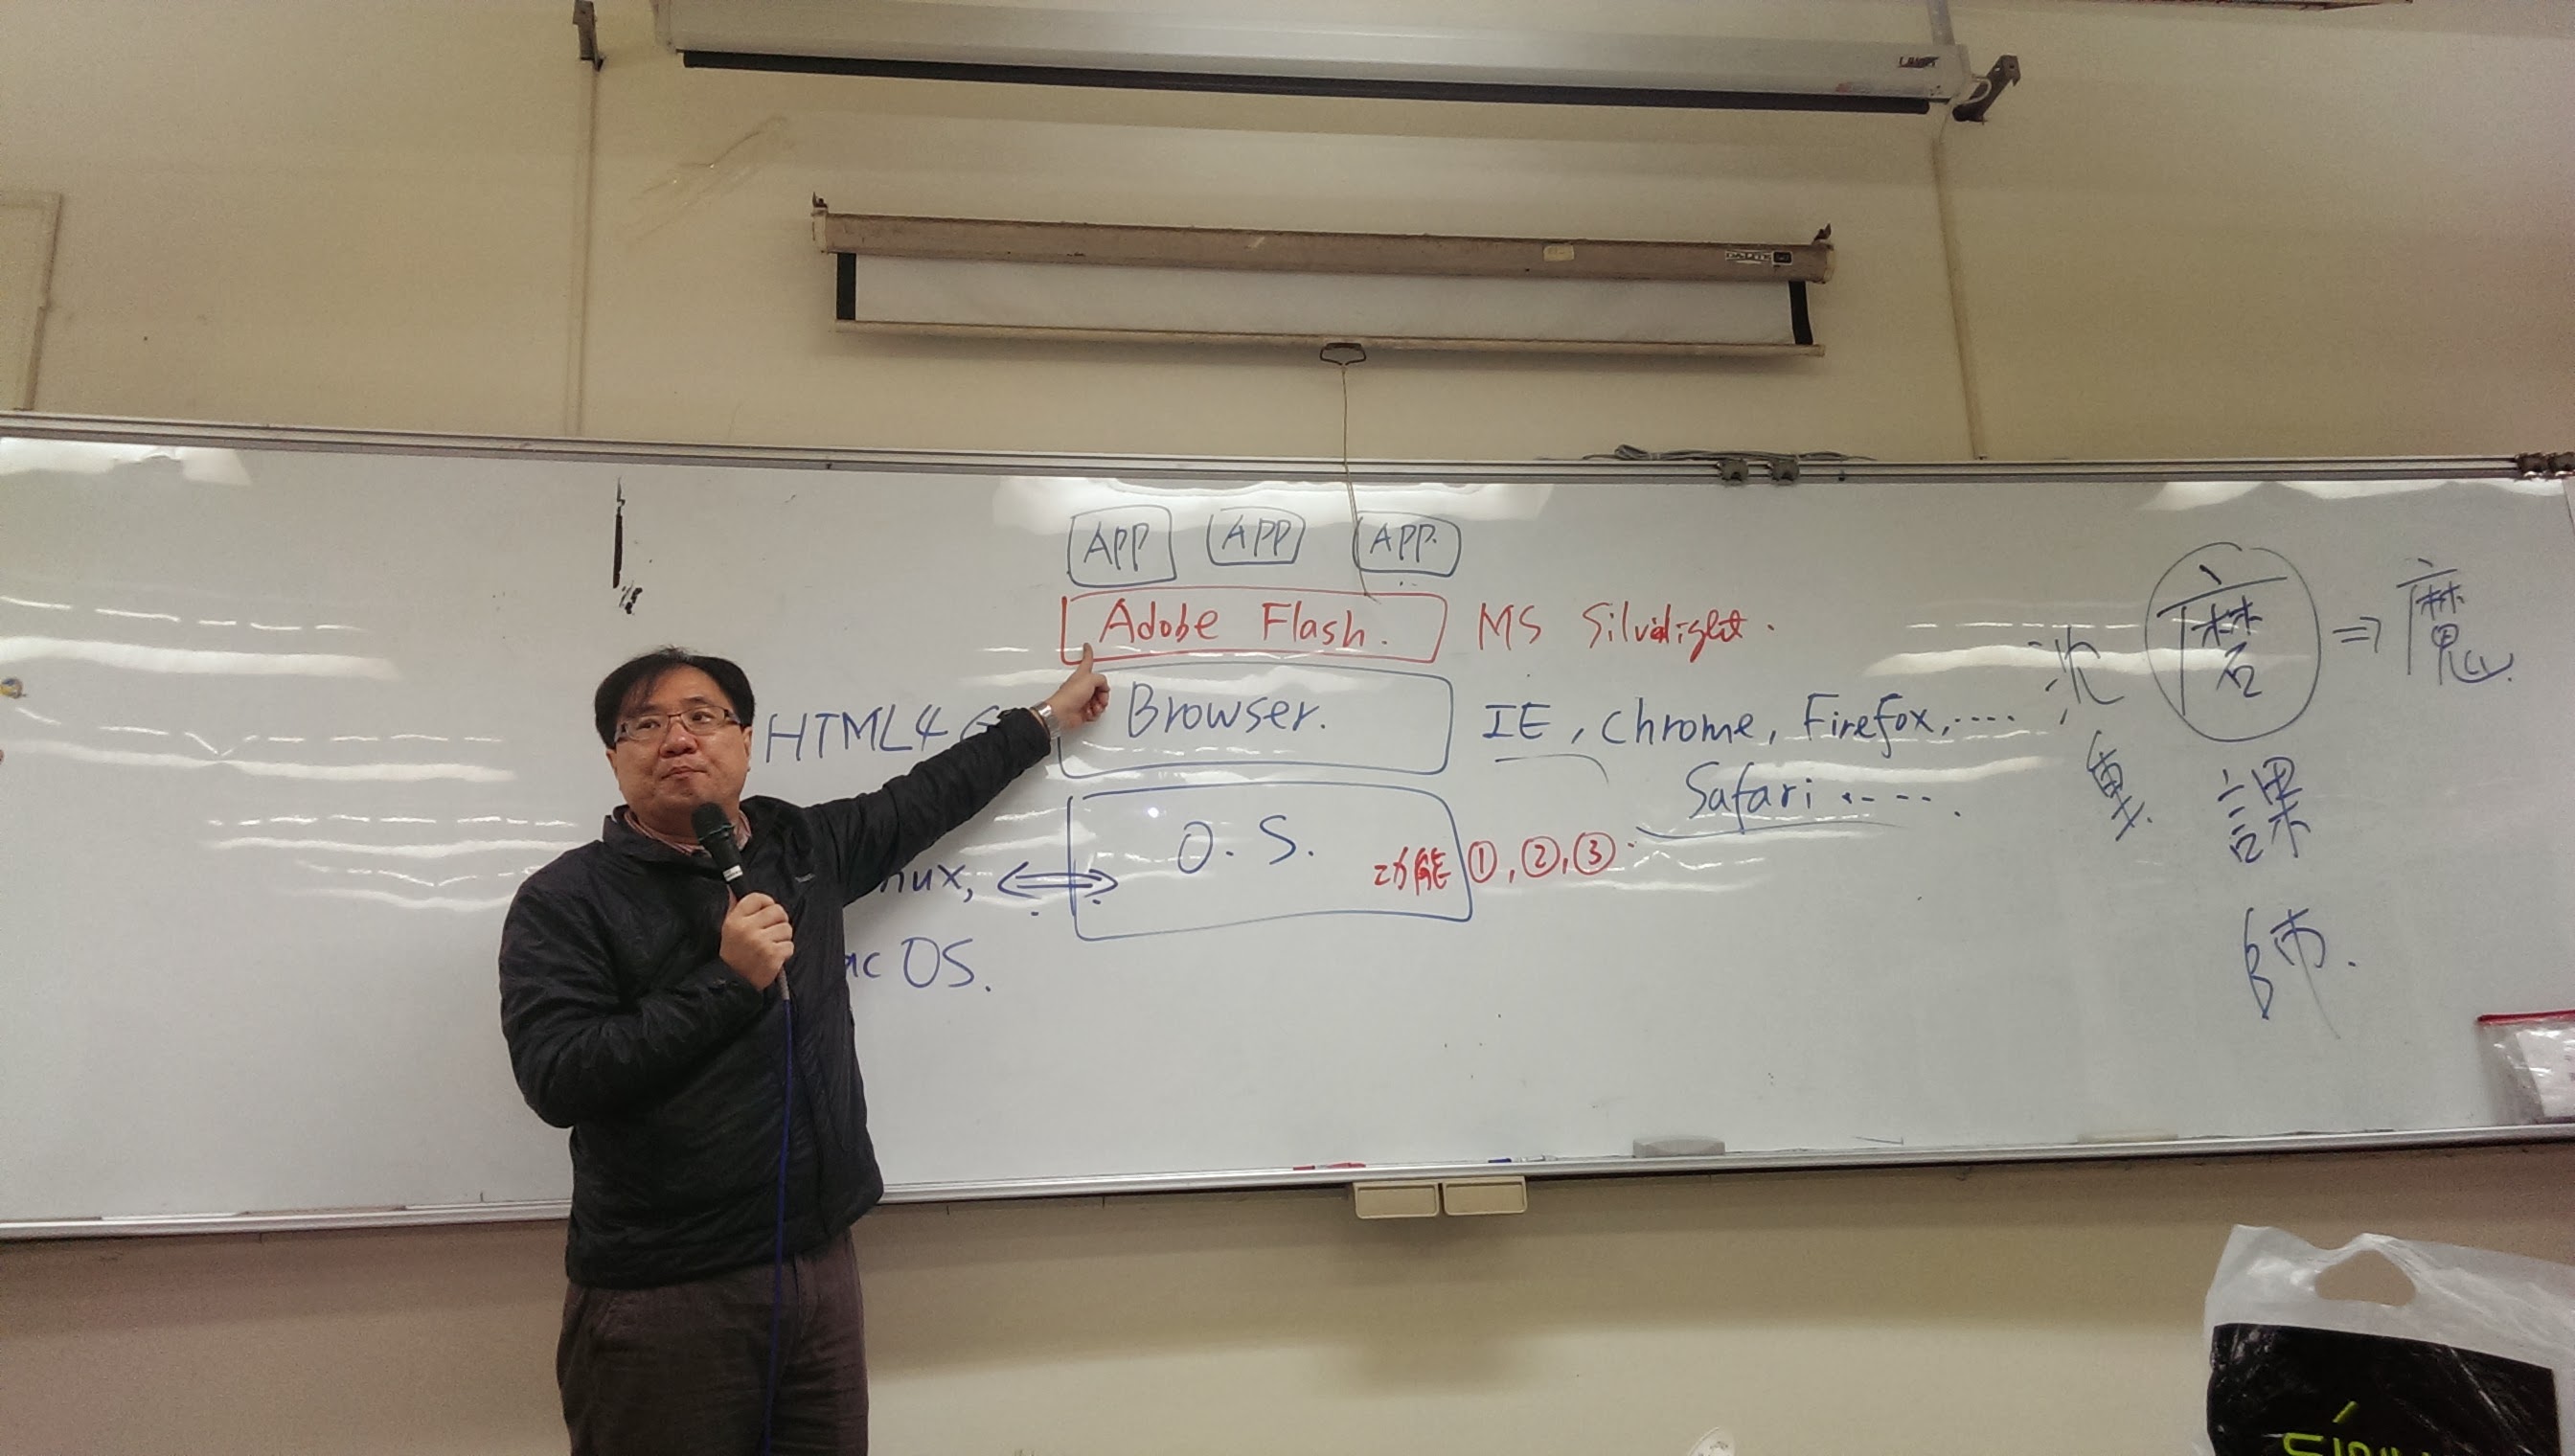 APP APP APP.
Adobe Flash. MS Silverlight.
HTML4 Browser. IE, Chrome, Firefox, ....
Safari .....
O. S. 功能 ①, ②, ③.
nux, ⇔
ac OS.
沈重
磨 ⇒ 魔
課
師.
DA-LITE